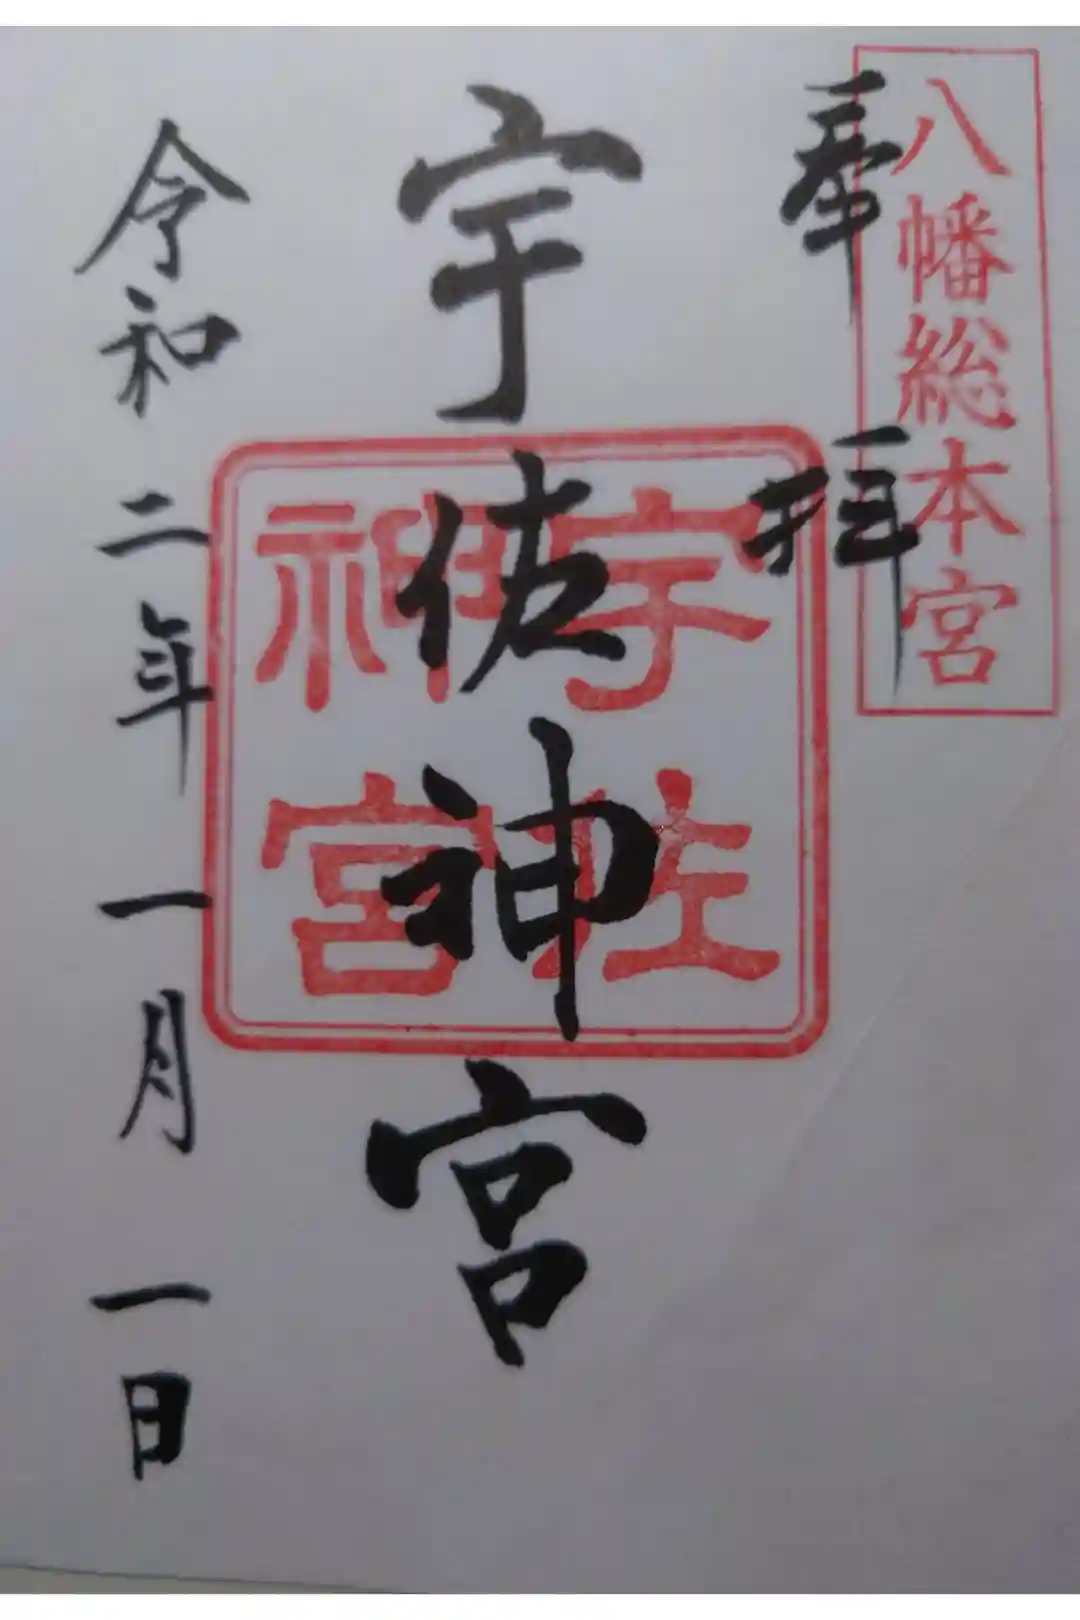 八幡総本宮
奉拝
宇佐神宮
宇佐
神宮
令和二年一月一日